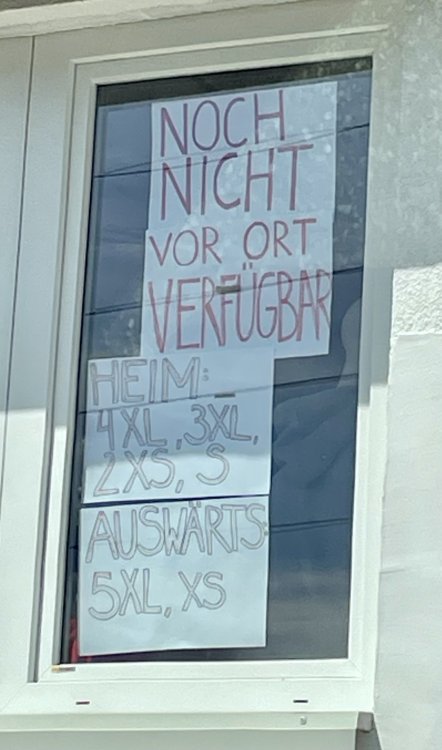 NOCH
NICHT
VOR ORT
VERFÜGBAR
HEIM:
4XL, 3XL,
2XS, S
AUSWÄRTS:
5XL, XS